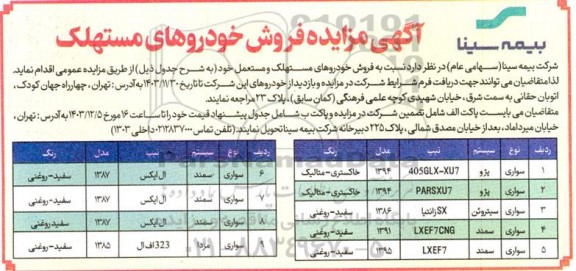 بیمه سینا
آگهی مزایده فروش خودروهای مستهلک
شرکت بیمه سینا (سهامی عام) در نظر دارد نسبت به فروش خودروهای مستهلک و مستعمل خود (به شرح جدول ذیل) از طریق مزایده عمومی اقدام نماید.
لذا متقاضیان می توانند جهت دریافت فرم شرایط شرکت در مزایده و بازدید از خودروهای این شرکت تا تاریخ ۱۴۰۳/۱۱/۳۰ به آدرس: تهران، چهارراه جهان کودک،
اتوبان حقانی به سمت شرق، خیابان شهیدی کوچه علمی فرهنگی (کمان سابق)، پلاک ۲۳ مراجعه نمایند.
متقاضیان می بایست پاکت الف شامل تضمین شرکت در مزایده و پاکت ب شامل جدول پیشنهاد قیمت خود را تا ساعت ۱۶ مورخ ۱۴۰۳/۱۲/۵ به آدرس: تهران،
خیابان میرداماد، بعد از خیابان مصدق شمالی، پلاک ۲۲۵ دبیرخانه شرکت بیمه سینا تحویل نمایند: (تلفن تماس ۰۲۱۲۸۳۷۰۰۰۰ داخلی ۱۳۰۳)
ردیف نوع سیستم تیپ مدل رنگ
۱ سواری پژو 405GLX-XU7 ۱۳۹۴ خاکستری-متالیک
۲ سواری پژو PARSXU7 ۱۳۹۴ خاکستری-متالیک
۳ سواری سیتروئن SX زانتیا ۱۳۸۶ سفید-روغنی
۴ سواری سمند LXEF7CNG ۱۳۹۱ سفید-روغنی
۵ سواری سمند LXEF7 ۱۳۹۵ سفید-روغنی
ردیف نوع سیستم تیپ مدل رنگ
۶ سواری سمند ال ایکس ۱۳۸۷ سفید-روغنی
۷ سواری سمند ال ایکس ۱۳۸۷ سفید-روغنی
۸ سواری سمند ال ایکس ۱۳۸۷ سفید روغنی
۹ سواری مزدا 323 اف ال ۱۳۸۵ سفید-روغنی